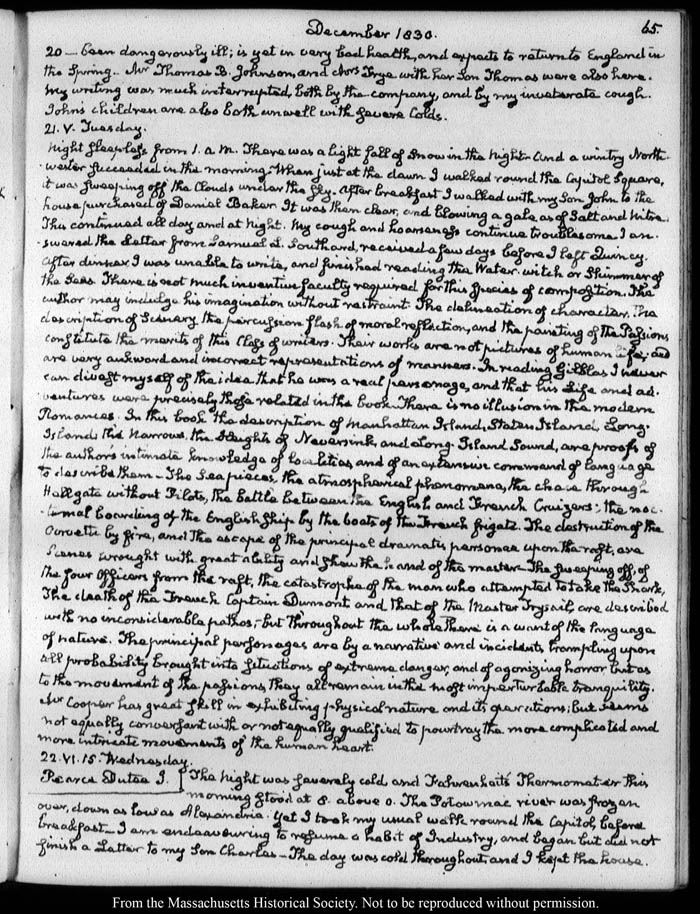 December 1830. 65.
20 — been dangerously ill; is yet in very bad health, and expects to return to England in
the Spring. Mr Thomas B. Johnson, and Mrs Frye with her Son Thomas were also here.
My writing was much interrupted, both by the company, and by my inveterate cough.
John's children are also both unwell with severe Colds.
21. V. Tuesday.
Night sleepless from 1. A.M. There was a light fall of Snow in the Night. And a wintry North
-wester succeeded in the morning. When just at the dawn I walked round the Capitol Square,
it was sweeping off the Clouds under the Sky. After breakfast I walked with my Son John to the
house purchased of Daniel Baker. It was then clear, and blowing a gale as of Salt and Nitre.
This continued all day and at Night. My cough and hoarseness continue troublesome. I an-
swered the Letter from Samuel L. Southard, received a few days before I left Quincy.
After dinner I was unable to write, and finished reading the Water-witch or Skimmer of
the Seas. There is not much inventive faculty required for this Species of composition. The
author may indulge his imagination without restraint. The delineation of character, the
description of Scenery the percussion flash of moral reflection, and the painting of the Passions
constitute the merits of this Class of writers. Their works are not pictures of human Life, and
are very awkward and incorrect representations of manners. In reading Gil blas I never
can divest myself of the idea that he was a real personage, and that his Life and ad-
ventures were precisely those related in the book. There is no illusion in the modern
Romances. In this book the description of Manhattan Island, Staten Island, Long-
Island, the Narrows, the Heights of Neversink, and Long-Island Sound, are proofs of
the author's intimate knowledge of localities, and of an extensive command of language
to describe them — The Sea pieces, the atmospherical phenomena, the chace through
Hellgate without Pilots, the battle between the English and French Cruizers; the noc-
-turnal boarding of the English Ship by the boats of the French frigate. The destruction of the
Corvette by fire, and the escape of the principal dramatis personae upon the raft, are
Scenes wrought with great ability and shew the hand of the master. The sweeping off, of
the four Officers from the raft, the catastrophe of the man who attempted to take the Shark,
The death of the French Captain Dumont and that of the Master Trysail, are described
with no inconsiderable pathos; but throughout the whole there is a want of the language
of nature. The principal personages are by a narrative and incidents, trampling upon
all probability brought into situations of extreme danger, and of agonizing horror but as
to the movement of the passions, they all remain in the most imperturbable tranquility.
Mr Cooper has great skill in exhibiting physical nature and its operations; but seems
not equally conversant with or not equally qualified to pourtray the more complicated and
more intricate movements of the human heart.
22. VI. 15. Wednesday.
Pearce Dutee J. The Night was severely cold and Fahrenheit's Thermometer this
morning stood at 8. above 0. The Potowmac river was frozen
over, down as low as Alexandria. Yet I took my usual walk round the Capitol, before
breakfast — I am endeavouring to resume a habit of Industry, and began but did not
finish a Letter to my Son Charles — The day was cold throughout, and I kept the house.
From the Massachusetts Historical Society. Not to be reproduced without permission.